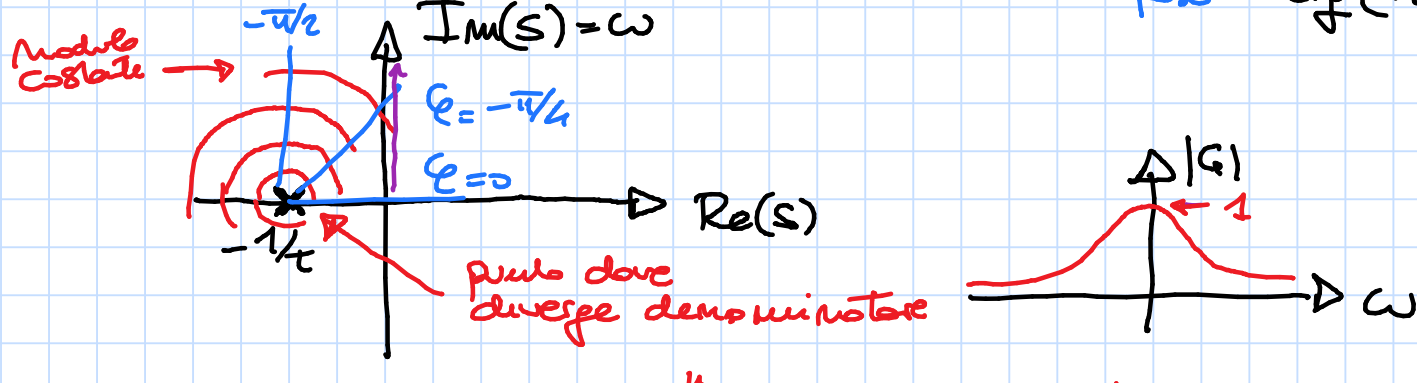 -π/2
Im(s)=ω
Modulo
costante
φ=-π/4
φ=0
Re(s)
-1/τ
punto dove
diverge denominatore
|G|
1
ω